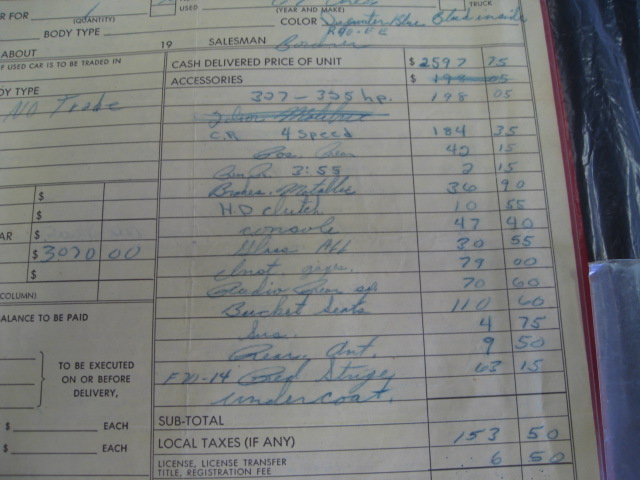 R FOR 1 NEW USED TRUCK
(QUANTITY) (YEAR AND MAKE)
BODY TYPE COLOR Blue Black inside
ABOUT 19 SALESMAN
F USED CAR IS TO BE TRADED IN CASH DELIVERED PRICE OF UNIT $ 2597 75
DY TYPE ACCESSORIES $ 198 05
No Trade 327 - 325 hp. 198 05
C.R. 4 Speed 184 35
Pos. Rear 42 15
3:55 2 15
Brakes, Metallic 36 90
$ H.D clutch 10 55
$ console 47 40
AR $ 3070 00 30 55
$ 79 00
COLUMN) Radio Rear sp 70 60
Bucket Seats 110 60
ALANCE TO BE PAID 4 75
Rear Ant. 9 50
TO BE EXECUTED ON OR BEFORE DELIVERY, Red Stripe 63 15
undercoat.
$ EACH SUB-TOTAL
$ EACH LOCAL TAXES (IF ANY) 153 50
LICENSE, LICENSE TRANSFER 6 50
TITLE, REGISTRATION FEE